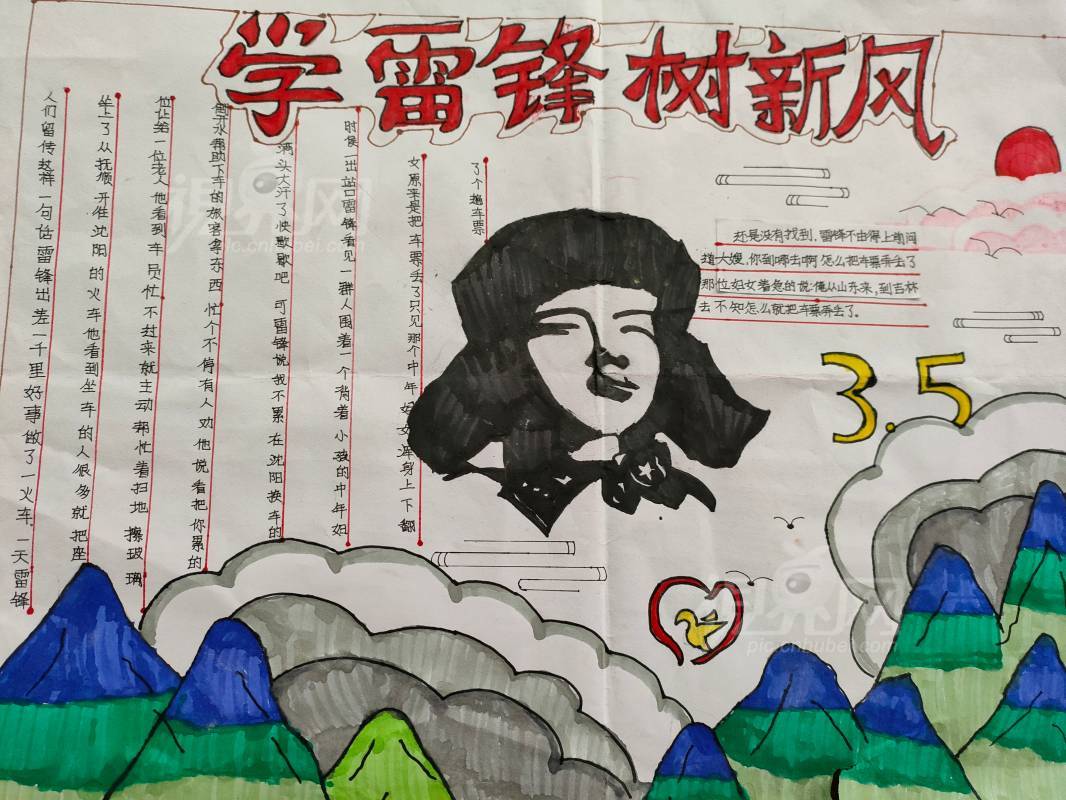 学雷锋 树新风
人们留传这样一句话雷锋出差一千里好事做了一火车.一天雷锋
坐上了从抚顺开往沈阳的火车他看到坐车的人很多就把座
位让给一位老人他看到车员忙不过来就主动帮忙着扫地 擦玻璃
倒开水帮助下车的旅客拿东西忙个不停有人劝他说看把你累的
满头大汗了快歇歇吧 可雷锋说我不累在沈阳换车的
时候一出站口雷锋看见一群人围着一个背着小孩的中年妇
女原来是把车票丢了只见那个中年妇女浑身上下翻
了个遍车票
还是没有找到.雷锋不由得上前问
道大嫂,你到哪去啊怎么把车票弄丢了
那位妇女着急的说:俺从山东来,到吉林
去不知怎么就把车票弄丢了.
3.5
视界网
pic.cnhubei.com
视界网
pic.cnhubei.com